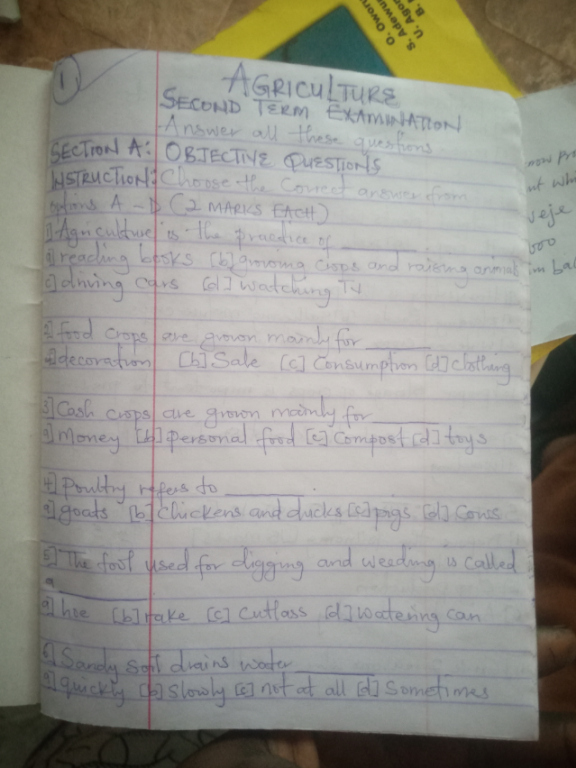 O. Owor
S. Adewun
U. Agom
B.
1
AGRICULTURE
SECOND TERM EXAMINATION
Answer all these questions
SECTION A: OBJECTIVE QUESTIONS
INSTRUCTION: Choose the Correct answer from
options A - D (2 MARKS EACH)
1] Agriculture is the practice of ______
a] reading books [b] growing crops and raising animal
c] driving cars [d] watching TV
2] food crops are grown mainly for ______
a] decoration [b] Sale [c] Consumption [d] clothing
3] Cash crops are grown mainly for ______
a] Money [b] personal food [c] Compost [d] toys
4] Poultry refers to ______.
a] goats [b] Chickens and ducks [c] pigs [d] Cows
5] The tool used for digging and weeding is called
a ______.
a] hoe [b] rake [c] Cutlass [d] watering can
6] Sandy soil drains water ______
a] quickly [b] slowly [c] not at all [d] Sometimes